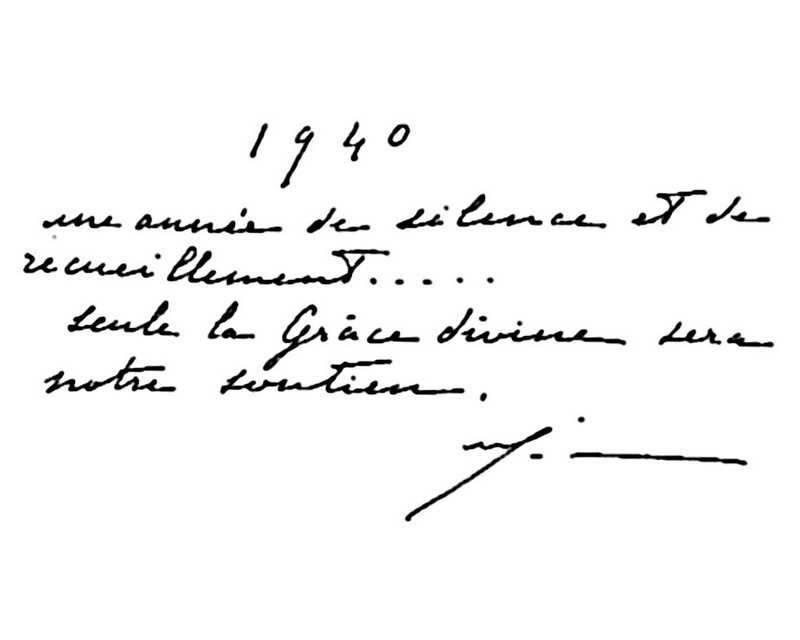 1940
une année de silence et de
recueillement.....
seule la Grâce divine sera
notre soutien.